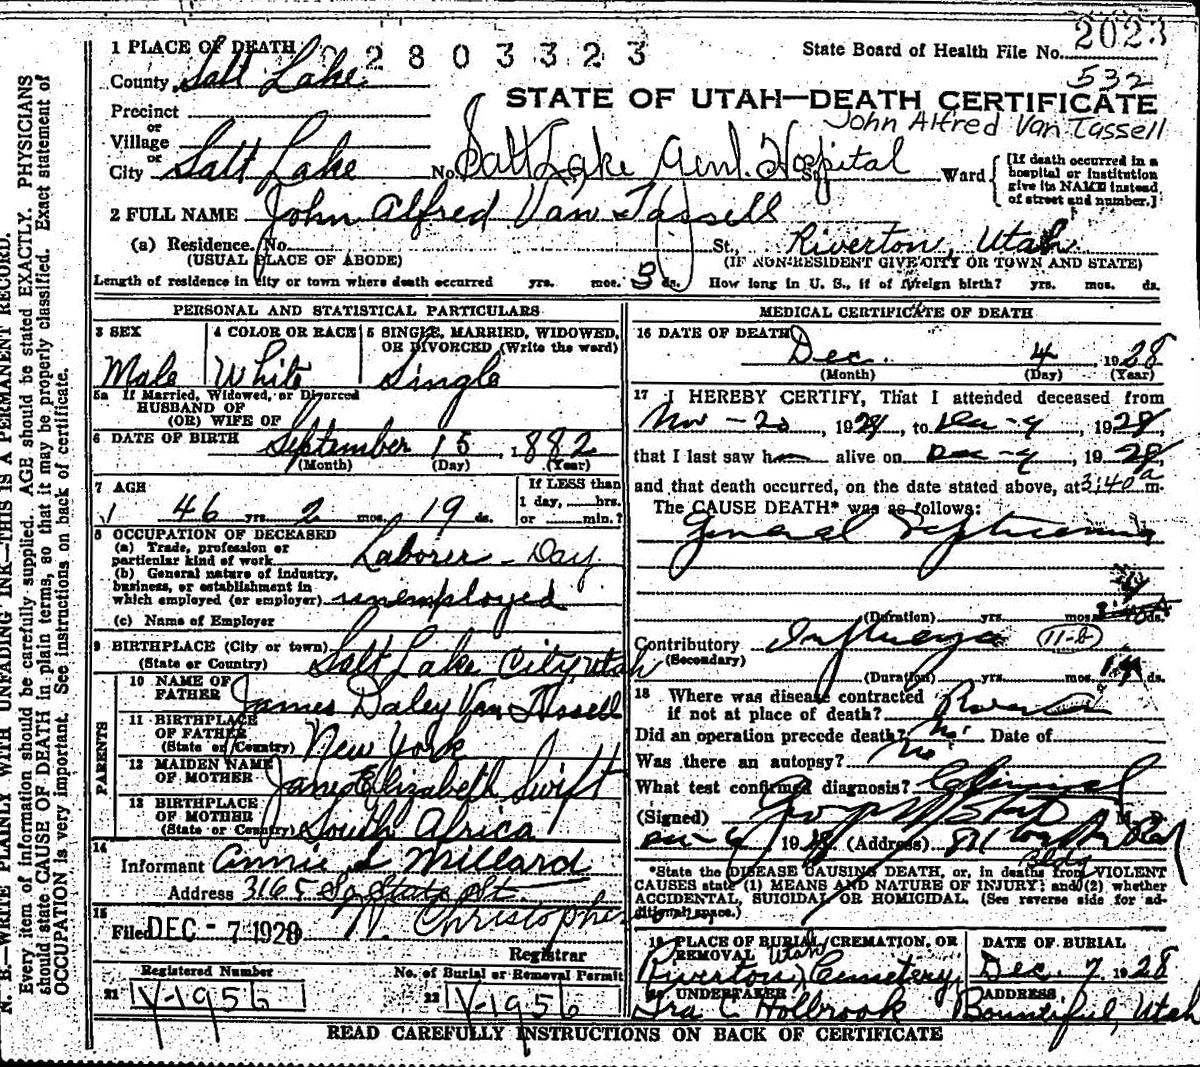 2023
1 PLACE OF DEATH 2803323 State Board of Health File No.
532
County Salt Lake
STATE OF UTAH—DEATH CERTIFICATE
Precinct
John Alfred Van Tassell
or
Village
or
City Salt Lake No. Salt Lake Genl. Hospital St., Ward
[If death occurred in a hospital or institution give its NAME instead of street and number.]
2 FULL NAME John Alfred Van Tassell
(a) Residence. No. St., Riverton, Utah
(USUAL PLACE OF ABODE) (IF NON-RESIDENT GIVE CITY OR TOWN AND STATE)
Length of residence in city or town where death occurred yrs. mos. 3 ds. How long in U. S., if of foreign birth? yrs. mos. ds.
PERSONAL AND STATISTICAL PARTICULARS
3 SEX 4 COLOR OR RACE 5 SINGLE, MARRIED, WIDOWED, OR DIVORCED (Write the word)
Male White Single
5a If Married, Widowed, or Divorced
HUSBAND OF
(OR) WIFE OF
6 DATE OF BIRTH September 15, 1882
(Month) (Day) (Year)
7 AGE If LESS than
1 day, hrs.
46 yrs. 2 mos. 19 ds. or min.?
8 OCCUPATION OF DECEASED
(a) Trade, profession or
particular kind of work Laborer - Day
(b) General nature of industry,
business, or establishment in
which employed (or employer) unemployed
(c) Name of Employer
9 BIRTHPLACE (City or town)
(State or Country) Salt Lake City, Utah
PARENTS
10 NAME OF
FATHER James Daley Van Tassell
11 BIRTHPLACE
OF FATHER
(State or Country) New York
12 MAIDEN NAME
OF MOTHER Jane Elizabeth Swift
13 BIRTHPLACE
OF MOTHER
(State or Country) South Africa
14
Informant Annie L Millard
Address 3165 So. State St.
15
Filed DEC - 7 1928 W. Christopherson
Registrar
Registered Number No. of Burial or Removal Permit
21 V-1956 22 V-1956
MEDICAL CERTIFICATE OF DEATH
16 DATE OF DEATH
Dec. 4 1928
(Month) (Day) (Year)
17 I HEREBY CERTIFY, That I attended deceased from
Nov - 20, 1928, to Dec - 4, 1928,
that I last saw him alive on Dec - 4, 1928,
and that death occurred, on the date stated above, at 3:40 a m.
The CAUSE DEATH* was as follows:
General Septicemia
(Duration) yrs. mos. ds.
Contributory Influenza 11-b
(Secondary)
(Duration) yrs. mos. 14 ds.
18 Where was disease contracted
if not at place of death? Riverton
Did an operation precede death? No. Date of
Was there an autopsy? No
What test confirmed diagnosis? Clinical
(Signed) M. D.
1928 (Address)
Bldg
*State the DISEASE CAUSING DEATH, or, in deaths from VIOLENT
CAUSES state (1) MEANS AND NATURE OF INJURY; and (2) whether
ACCIDENTAL, SUICIDAL OR HOMICIDAL. (See reverse side for additional space.)
19 PLACE OF BURIAL, CREMATION, OR REMOVAL DATE OF BURIAL
Riverton, Utah Cemetery Dec. 7, 1928
20 UNDERTAKER ADDRESS
Ira C Holbrook Bountiful, Utah
READ CAREFULLY INSTRUCTIONS ON BACK OF CERTIFICATE
N. B.—WRITE PLAINLY WITH UNFADING INK—THIS IS A PERMANENT RECORD.
Every item of information should be carefully supplied. AGE should be stated EXACTLY. PHYSICIANS
should state CAUSE OF DEATH in plain terms, so that it may be properly classified. Exact statement of
OCCUPATION is very important. See instructions on back of certificate.